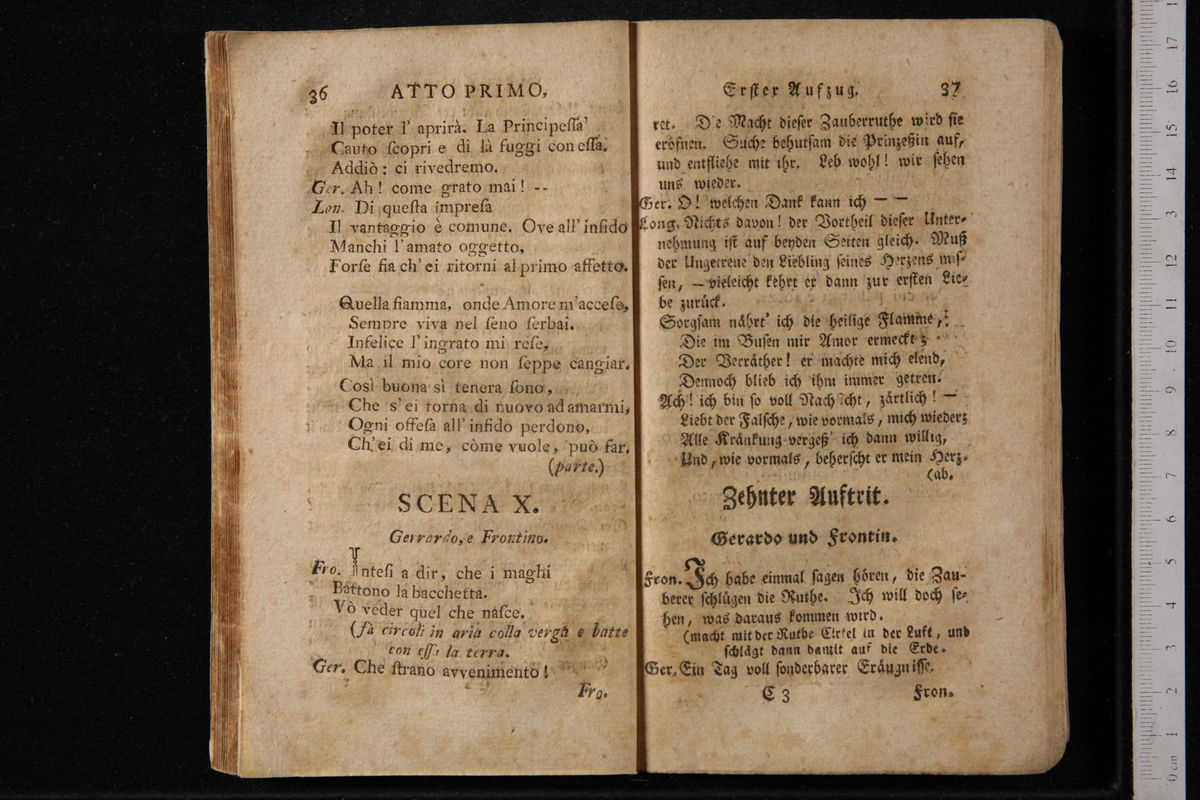 36 ATTO PRIMO.
Il poter l' aprirà. La Principeſſa'
Cauto ſcopri e di là fuggi con eſſa.
Addiò: ci rivedremo.
Ger. Ah! come grato mai! --
Lon. Di queſta impreſa
Il vantaggio è comune. Ove all' infido
Manchi l'amato oggetto,
Forſe fia ch' ei ritorni al primo affetto.
Quella fiamma, onde Amore m'acceſe,
Sempre viva nel ſeno ſerbai.
Infelice l'ingrato mi reſe,
Ma il mio core non ſeppe cangiar.
Così buona sì tenera ſono,
Che s' ei torna di nuovo ad amarmi,
Ogni offeſa all' infido perdono,
Ch' ei di me, còme vuole, può far.
(parte.)
SCENA X.
Gerrardo, e Frontino.
Fro. Inteſi a dir, che i maghi
Battono la bacchetta.
Vò veder quel che naſce.
(fà circoli in aria colla verga e batte
con eſſi la terra.
Ger. Che ſtrano avvenimento!
Fro.
Erſter Aufzug. 37
ret. Die Macht dieſer Zauberruthe wird ſie
eröfnen. Suche behutſam die Prinzeßin auf,
und entfliehe mit ihr. Leb wohl! wir ſehen
uns wieder.
Ger. O! welchen Dank kann ich — —
Long. Nichts davon! der Vortheil dieſer Unter-
nehmung iſt auf beyden Seiten gleich. Muß
der Ungetreue den Liebling ſeines Herzens miſ-
ſen, — vieleicht kehrt er dann zur erſten Lie-
be zurück.
Sorgſam nährt' ich die heilige Flamme,
Die im Buſen mir Amor erweckt;
Der Verräther! er machte mich elend,
Dennoch blieb ich ihm immer getreu.
Ach! ich bin ſo voll Nachſicht, zärtlich! —
Liebt der Falſche, wie vormals, mich wieder;
Alle Kränkung vergeß' ich dann willig,
Und, wie vormals, beherſcht er mein Herz.
(ab.
Zehnter Auftrit.
Gerardo und Frontin.
Fron. Ich habe einmal ſagen hören, die Zau-
berer ſchlügen die Ruthe. Ich will doch ſe-
hen, was daraus kommen wird.
(macht mit der Ruthe Cirkel in der Luft, und
ſchlägt dann damit auf die Erde.
Ger. Ein Tag voll ſonderbarer Eräugniſſe.
C 3 Fron.
0 cm 1 2 3 4 5 6 7 8 9 10 11 12 13 14 15 16 17